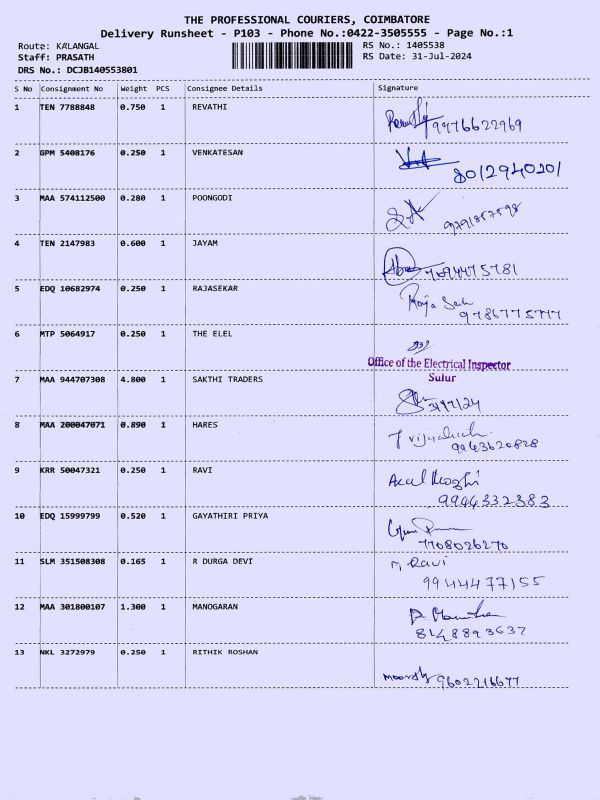 THE PROFESSIONAL COURIERS, COIMBATORE
Delivery Runsheet - P103 - Phone No.:0422-3505555 - Page No.:1
Route: KALANGAL RS No.: 1405538
Staff: PRASATH RS Date: 31-Jul-2024
DRS No.: DCJB140553801
S No Consignment No Weight PCS Consignee Details Signature
1 TEN 7788848 0.750 1 REVATHI
9976622969
2 GPM 5408176 0.250 1 VENKATESAN
8012940201
3 MAA 574112500 0.280 1 POONGODI
9791857598
4 TEN 2147983 0.600 1 JAYAM
7094475781
5 EDQ 10682974 0.250 1 RAJASEKAR
Raja Sek
9786775777
6 MTP 5064917 0.250 1 THE ELEL
Office of the Electrical Inspector
Sulur
7 MAA 944707308 4.800 1 SAKTHI TRADERS
31/7/24
8 MAA 200047071 0.890 1 HARES
9943620828
9 KRR 50047321 0.250 1 RAVI
9944332383
10 EDQ 15999799 0.520 1 GAYATHIRI PRIYA
7708026270
11 SLM 351508308 0.165 1 R DURGA DEVI
Ravi
9944477155
12 MAA 301800107 1.300 1 MANOGARAN
8148893637
13 NKL 3272979 0.250 1 RITHIK ROSHAN
9602216677